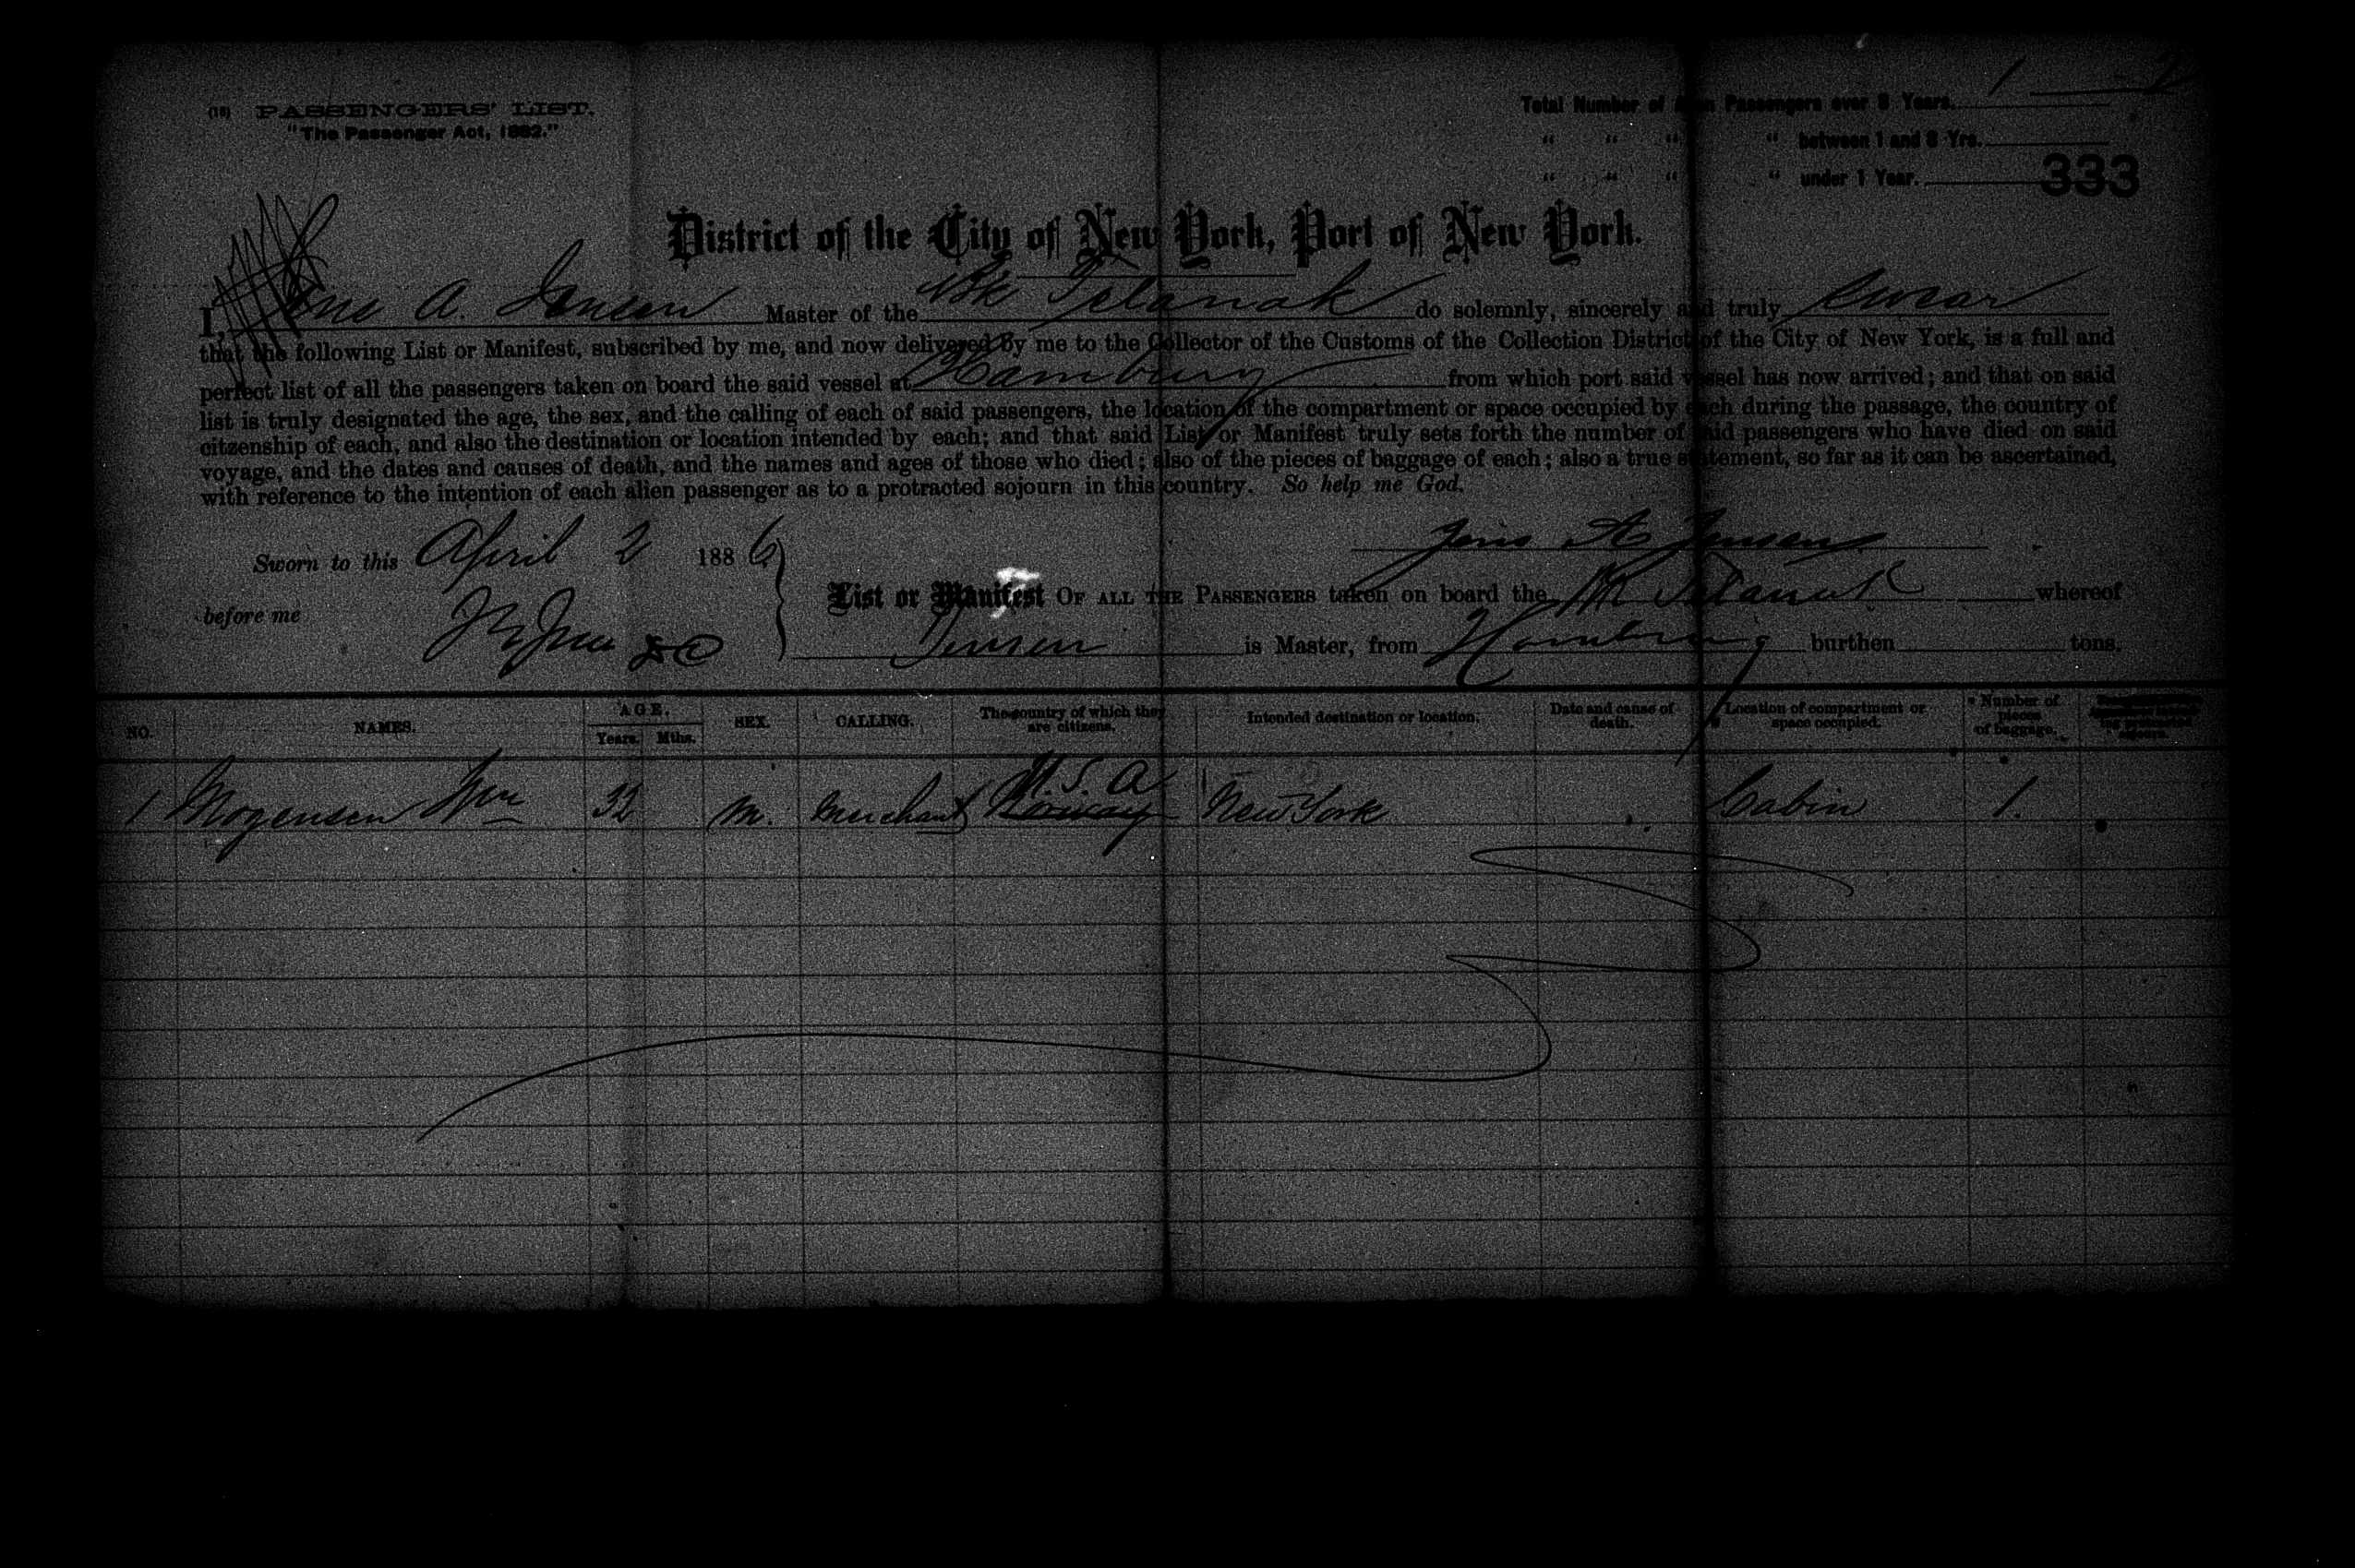 (18) PASSENGERS' LIST.
"The Passenger Act, 1882."
Total Number of Alien Passengers over 8 Years. 1
" " " " between 1 and 8 Yrs.
" " " " under 1 Year.
333
District of the City of New York, Port of New York.
I, A. Jensen Master of the Bk do solemnly, sincerely and truly swear
that the following List or Manifest, subscribed by me, and now delivered by me to the Collector of the Customs of the Collection District of the City of New York, is a full and
perfect list of all the passengers taken on board the said vessel at Hamburg from which port said vessel has now arrived; and that on said
list is truly designated the age, the sex, and the calling of each of said passengers, the location of the compartment or space occupied by each during the passage, the country of
citzenship of each, and also the destination or location intended by each; and that said List or Manifest truly sets forth the number of said passengers who have died on said
voyage, and the dates and causes of death, and the names and ages of those who died; also of the pieces of baggage of each; also a true statement, so far as it can be ascertained,
with reference to the intention of each alien passenger as to a protracted sojourn in this country. So help me God.
Jens A Jensen
Sworn to this April 2 1886
before me
List or Manifest OF ALL THE PASSENGERS taken on board the whereof
Jensen is Master, from Hamburg burthen tons.
NO. NAMES. AGE. Years. Mths. SEX. CALLING. The country of which they are citizens. Intended destination or location. Date and cause of death. Location of compartment or space occupied. Number of pieces of baggage.
1 Mogensen Wm 32 M. Merchant U.S.A Norway New York Cabin 1.